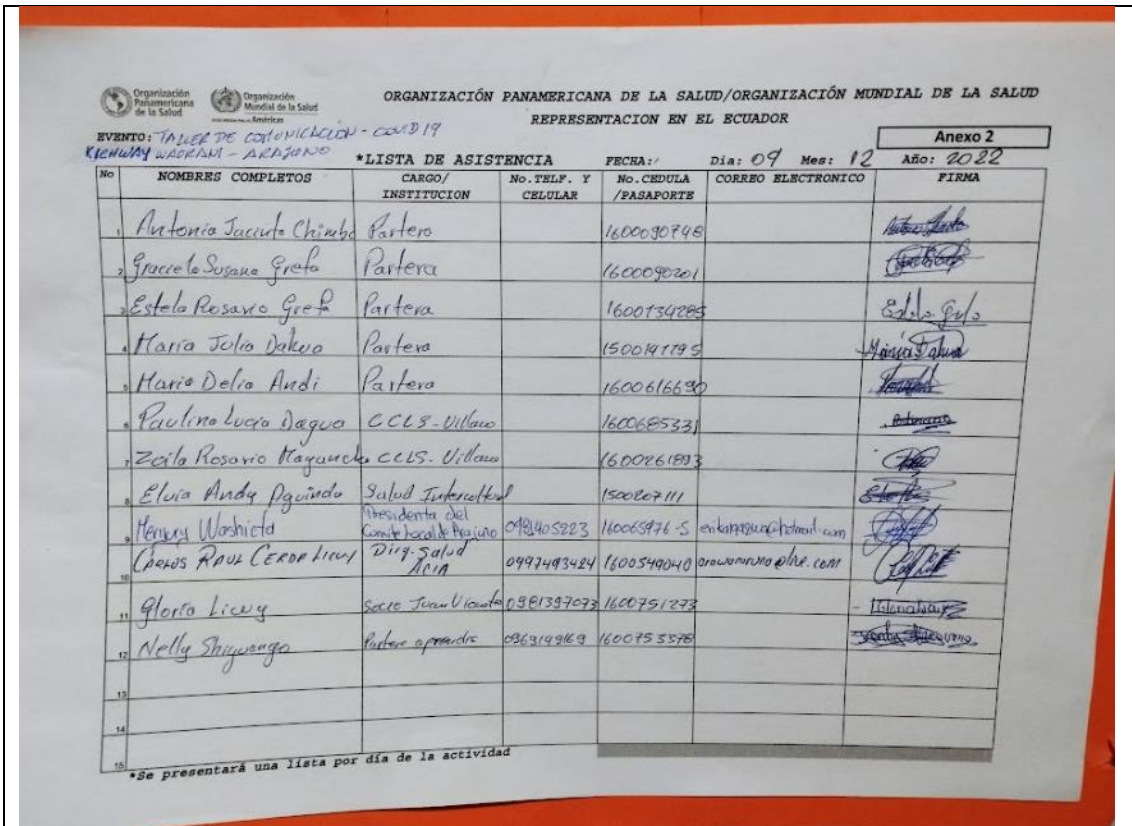 Organización Panamericana de la Salud
Organización Mundial de la Salud
Américas
ORGANIZACIÓN PANAMERICANA DE LA SALUD/ORGANIZACIÓN MUNDIAL DE LA SALUD
REPRESENTACION EN EL ECUADOR
Anexo 2
EVENTO: TALLER DE COMUNICACIÓN - COVID 19
KICHWAY WAORANI - ARAJUNO
*LISTA DE ASISTENCIA FECHA:/ Dia: 09 Mes: 12 Año: 2022
No NOMBRES COMPLETOS CARGO/ INSTITUCION No.TELF. Y CELULAR No.CEDULA /PASAPORTE CORREO ELECTRONICO FIRMA
1 Antonia Jacinto Chimbo Partero 1600090748
2 Graciela Susana Grefa Partera 1600090201
3 Estela Rosario Grefa Partera 1600134285
4 María Julia Dahua Partera 1500141795 María Dahua
5 Maria Delia Andi Partera 1600616690
6 Paulina Lucia Dagua CCLS-Villano 1600685331
7 Zoila Rosario CCLS-Villano 1600261893
8 Elvia Andy Aguinda Salud Intercultural 1500207111
9 Washieta Presidenta del Comite Local de Arajuno 0981405223 160065976-5
10 CARLOS RAUL CERDA LICUY Dirg. Salud 0997493424 1600549040
11 Gloria Licuy Socio Juan Vicente 0981397073 1600751273
12 Nelly Shiguango Partera aprendiz 0969149169 1600753378
13
14
15
*Se presentará una lista por día de la actividad